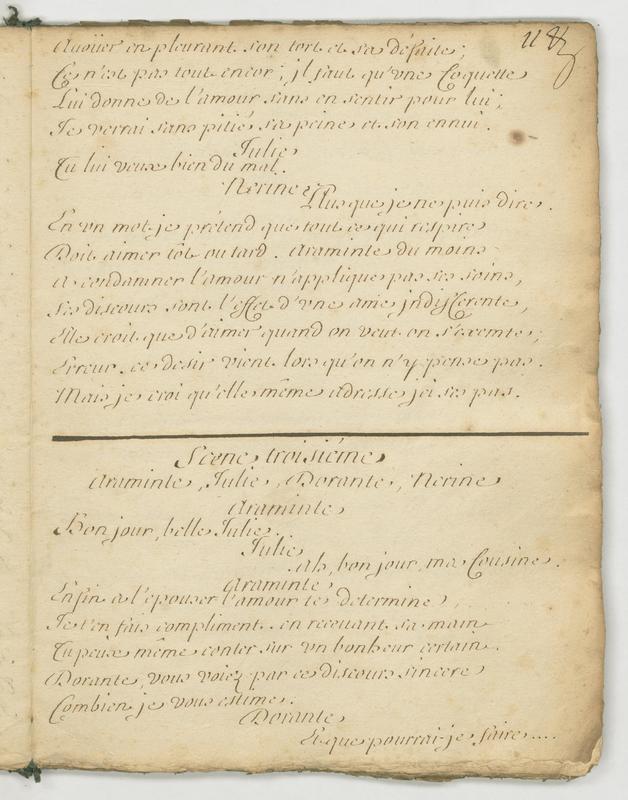 Avoüer en pleurant son tort et sa défaite;
Ce n'est pas tout encor; jl faut qu'vne Coquette
Lui donne de l'amour sans en sentir pour lui;
Je verrai sans pitié sa peine et son ennui.
Julie
Tu lui veux bien du mal.
Nerine
Plus que je ne puis dire.
En vn mot je prétend que tout ce qui respire
Doit aimer tôt ou tard. Araminte du moins
A condamner l'amour n'applique pas ses soins,
Ses discours sont l'effet d'vne ame jndifferente,
Elle croit que d'aimer quand on veut on s'exemte;
Erreur. ce desir vient lors qu'on n'y pense pas.
Mais je croi qu'elle même adresse jci ses pas.
Scene troisiéme
Araminte, Julie, Dorante, Nerine
Araminte
Bonjour, belle Julie.
Julie
Ah, bonjour, ma Cousine.
Araminte
Enfin a l'epouser l'amour te determine,
Je t'en fais compliment. en recevant sa main
Tu peux même conter sur vn bonheur certain.
Dorante, vous voiez par ce discours sincere
Combien je vous estime.
Dorante
Et que pourrai-je faire....